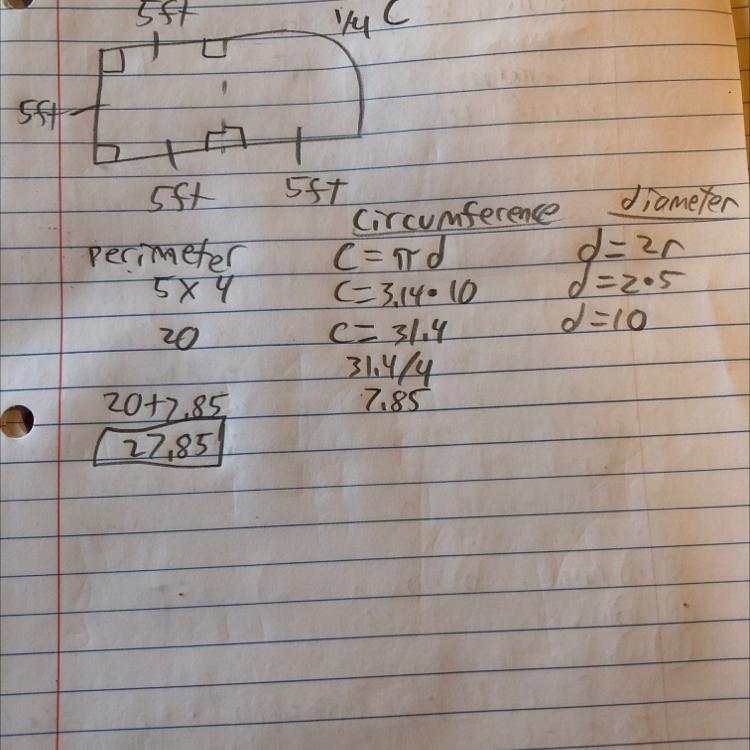 5ft
1/4 C
5ft
5ft
5ft
Circumference
diameter
perimeter
C = πd
d=2r
5 x 4
C=3.14•10
d=2•5
20
C= 31.4
d=10
31.4/4
20+7.85
7.85
27.85